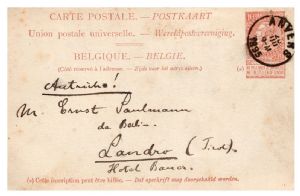 CARTE POSTALE. — POSTKAART
Union postale universelle. — Wereldpostvereeniging.
BELGIQUE. — BELGIË.
(Côté réservé à l'adresse. — Zijde voor het adres alleen.)
ANVERS
1895
Autriche!
M. Ernst Paulmann
da Berlin
Landro (Tirol)
Hotel Baur.
(a) Cette inscription peut être biffée. — Dit opschrift mag doorgehaald worden.